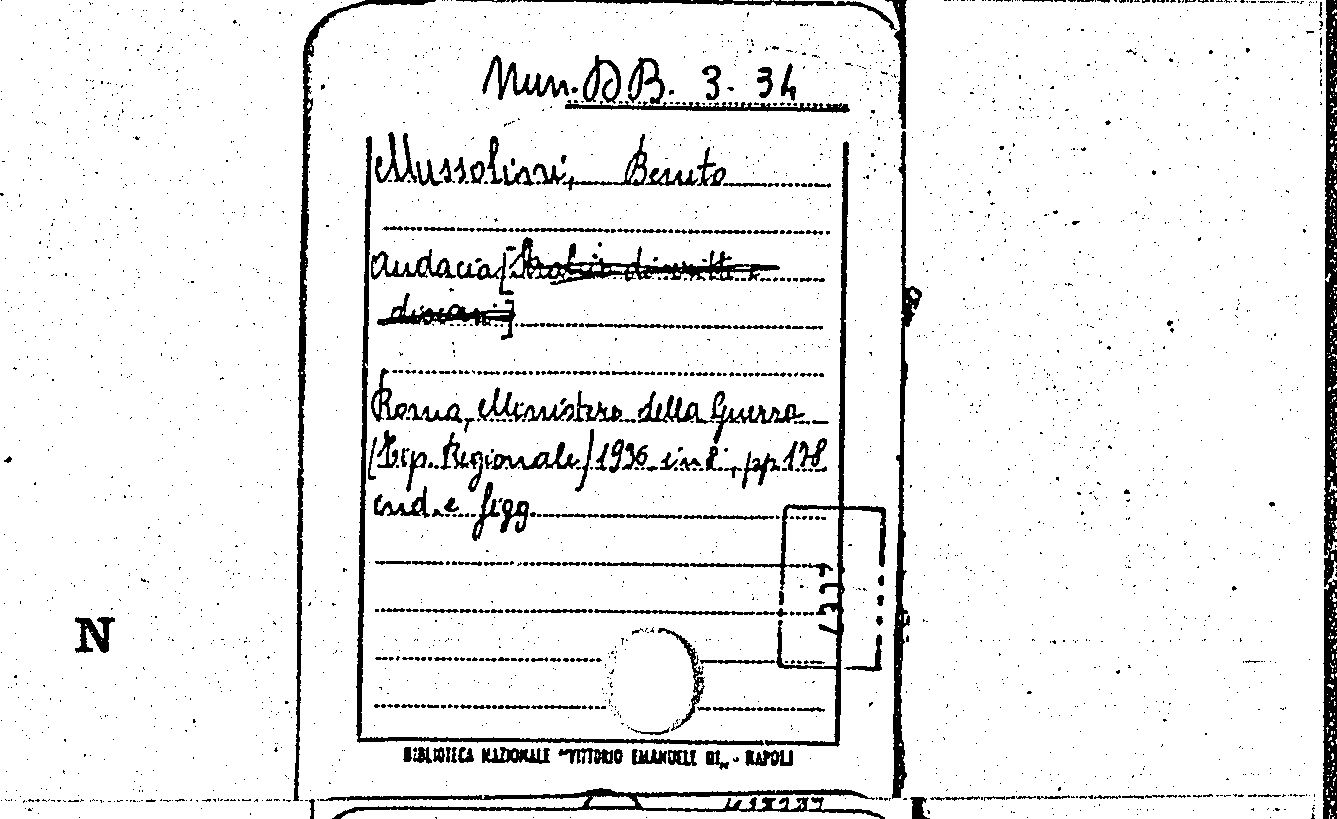 Mun. DB. 3. 34
Mussolini, Benito
Audacia [Stralci di scritti e
discorsi]
Roma, Ministero della Guerra
(Tip. Regionale) 1936 in 8°, pp. 178
cnd. e figg.
N
BIBLIOTECA NAZIONALE "VITTORIO EMANUELE III" - NAPOLI